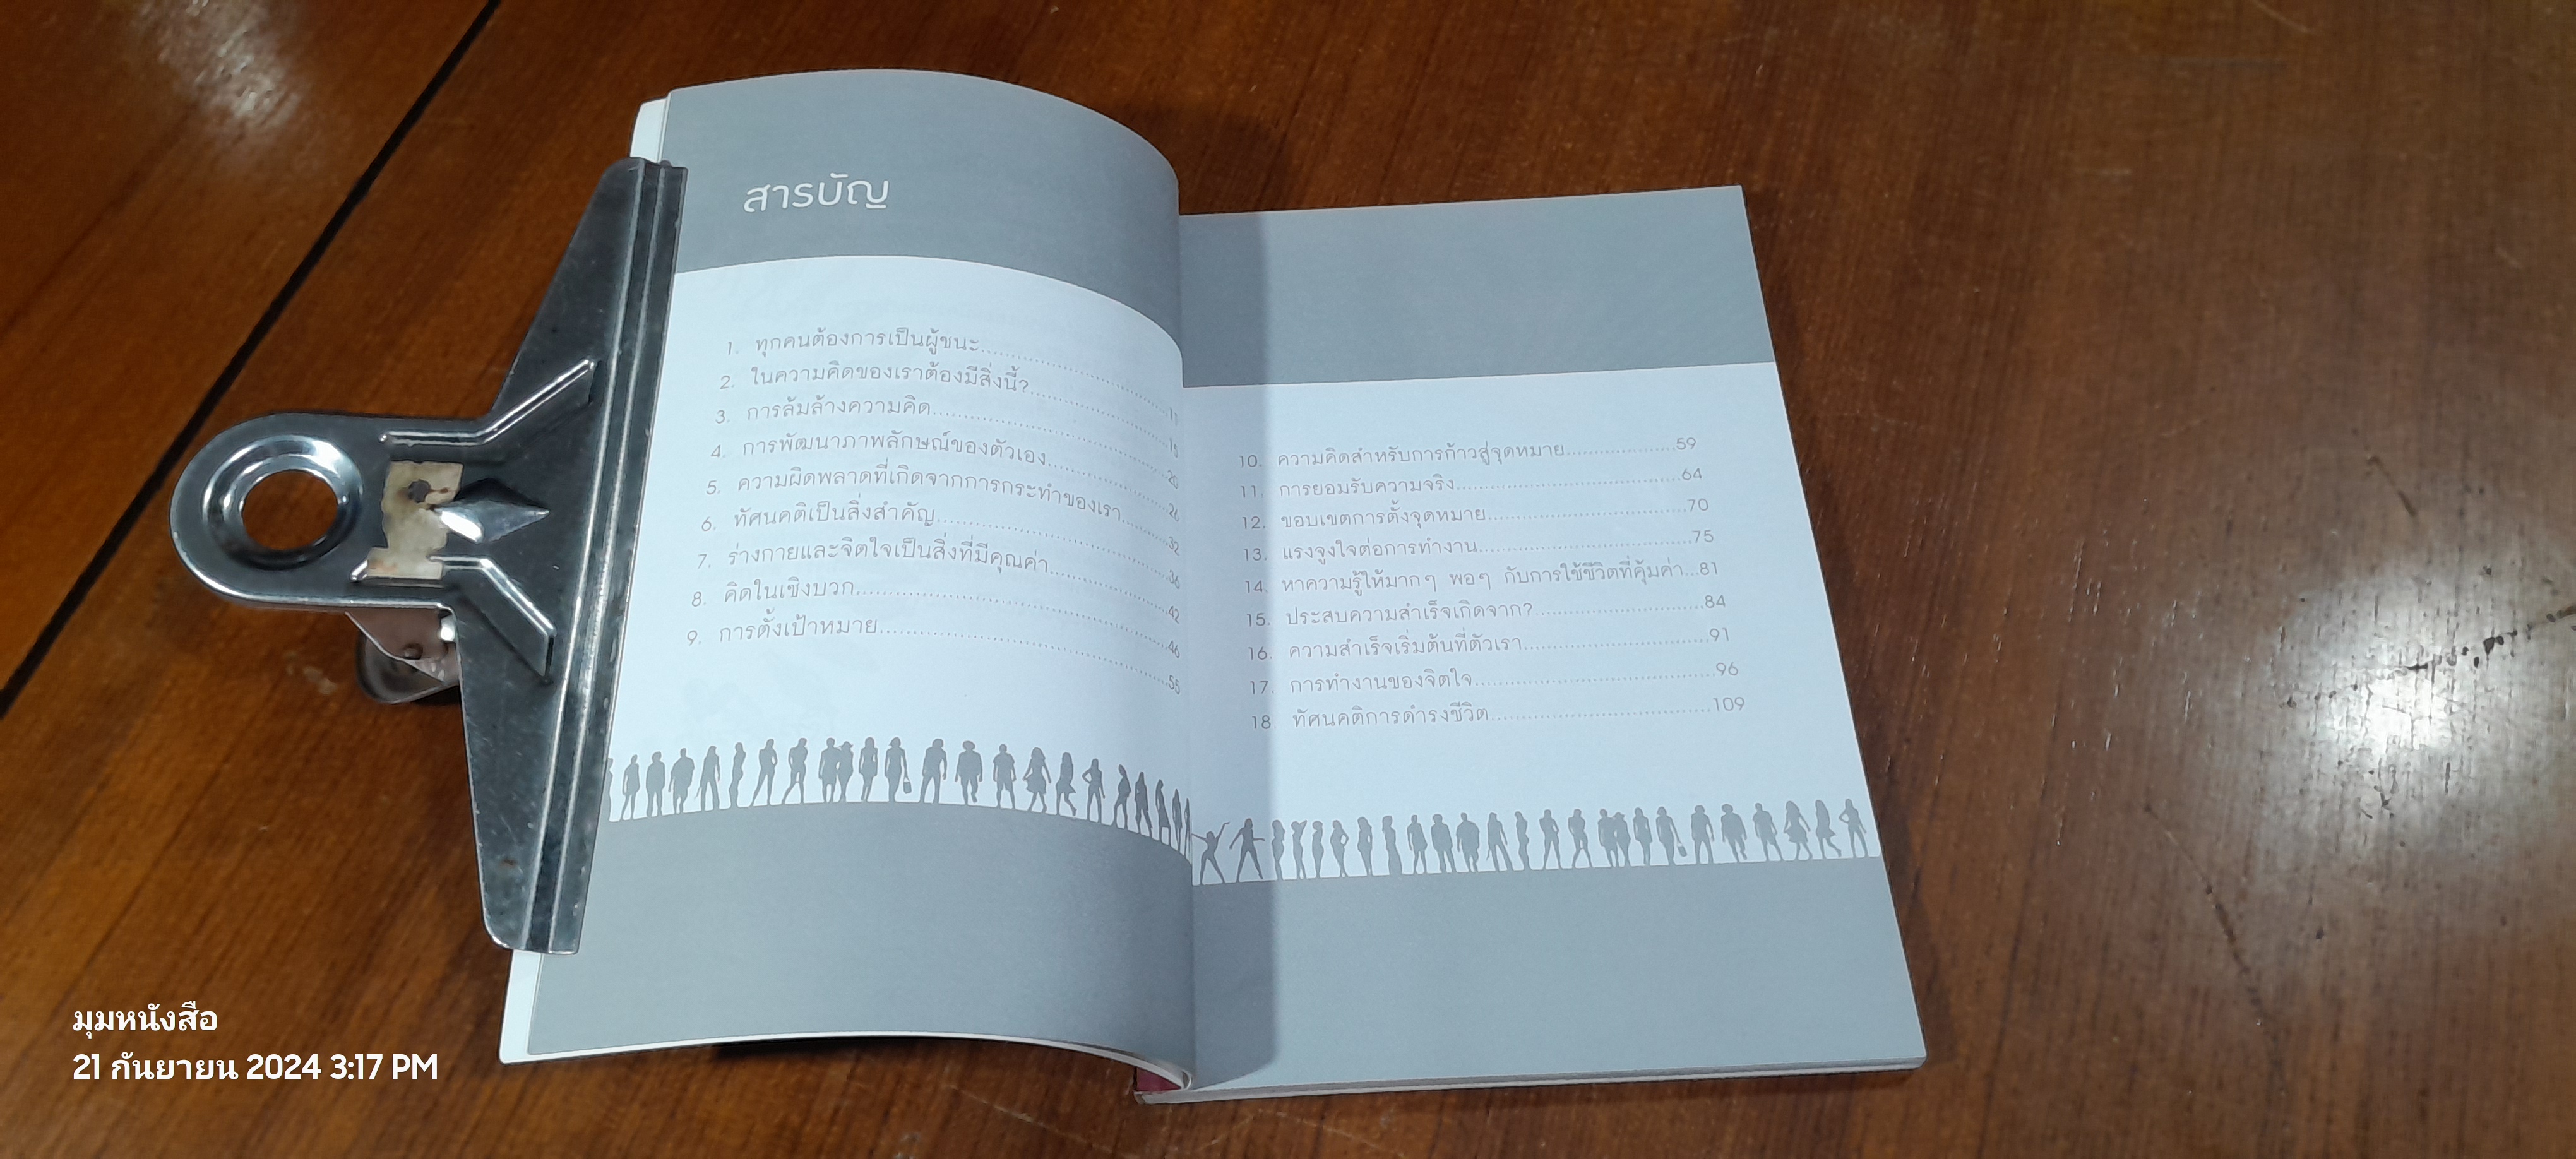 สารบัญ
1. ทุกคนต้องการเป็นผู้ชนะ..............................11
2. ในความคิดของเราต้องมีสิ่งนี้?..............................16
3. การล้มล้างความคิด..............................20
4. การพัฒนาภาพลักษณ์ของตัวเอง..............................26
5. ความผิดพลาดที่เกิดจากการกระทำของเรา..........32
6. ทัศนคติเป็นสิ่งสำคัญ..............................36
7. ร่างกายและจิตใจเป็นสิ่งที่มีคุณค่า....................42
8. คิดในเชิงบวก..............................46
9. การตั้งเป้าหมาย..............................55
10. ความคิดสำหรับการก้าวสู่จุดหมาย....................59
11. การยอมรับความจริง..............................64
12. ขอบเขตการตั้งจุดหมาย..............................70
13. แรงจูงใจต่อการทำงาน..............................75
14. หาความรู้ให้มากๆ พอๆ กับการใช้ชีวิตที่คุ้มค่า...81
15. ประสบความสำเร็จเกิดจาก?..............................84
16. ความสำเร็จเริ่มต้นที่ตัวเรา..............................91
17. การทำงานของจิตใจ..............................96
18. ทัศนคติการดำรงชีวิต..............................109
มุมหนังสือ
21 กันยายน 2024 3:17 PM